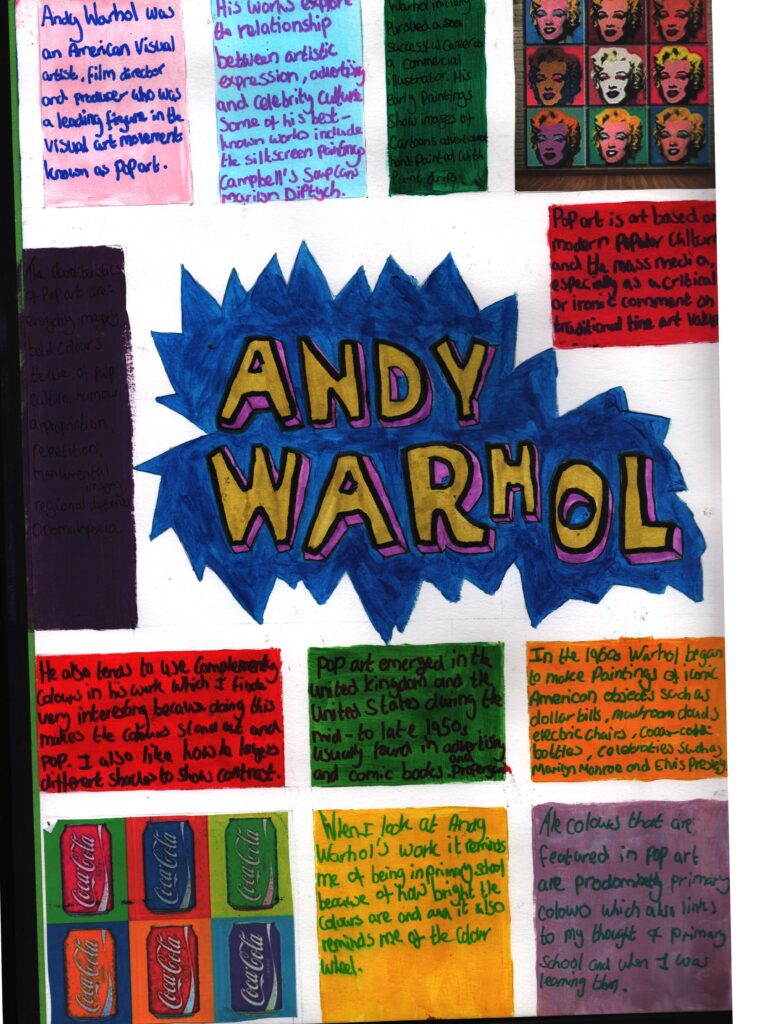 Andy Warhol was
an American Visual
artist, film director
and producer who was
a leading figure in the
visual art movement
known as Pop art.
His works explore
the relationship
between artistic
expression, advertising
and celebrity culture.
Some of his best-
known works include
the silkscreen paintings
Campbell's Soup Cans
Marilyn Diptych.
Warhol initially
Pursued a
successful career as
a commercial
illustrator. His
early Paintings
Show images of
Cartoons advertisements
hand-Painted with
Paint drips
Pop art is art based on
modern Popular Culture
and the mass media,
especially as a critical
or ironic comment on
traditional fine art value
The characteristics
of Pop art are:-
everyday imagery
bold colours
the use of pulp
culture, humour
appropriation,
repetition,
monumental
imagery
regional
Onomatopoeia.
ANDY
WARHOL
He also tends to use Complementry
Colours in his work which I find
very interesting because doing this
makes the colours stand out and
pop. I also like how he layers
different shades to show contrast.
Pop art emerged in the
united kingdom and the
United States during the
mid-to late 1950s
usually found in advertising
and comic books.
In the 1960s Warhol began
to make Paintings of iconic
American objects such as
dollar bills, mushroom clouds
electric chairs, Coca-cola
bottles, celebraties such as
Marilyn Monroe and Elvis Presley
Coca-Cola
Coca-Cola
Coca-Cola
Coca-Cola
Coca-Cola
Coca-Cola
When I look at Andy
Warhol's work it reminds
me of being in primary school
because of how bright the
colours are and it also
reminds me of the colour
wheel.
The colours that are
featured in Pop art
are prodominatly primary
colours which also links
to my thought of primary
school and when I was
learning them.